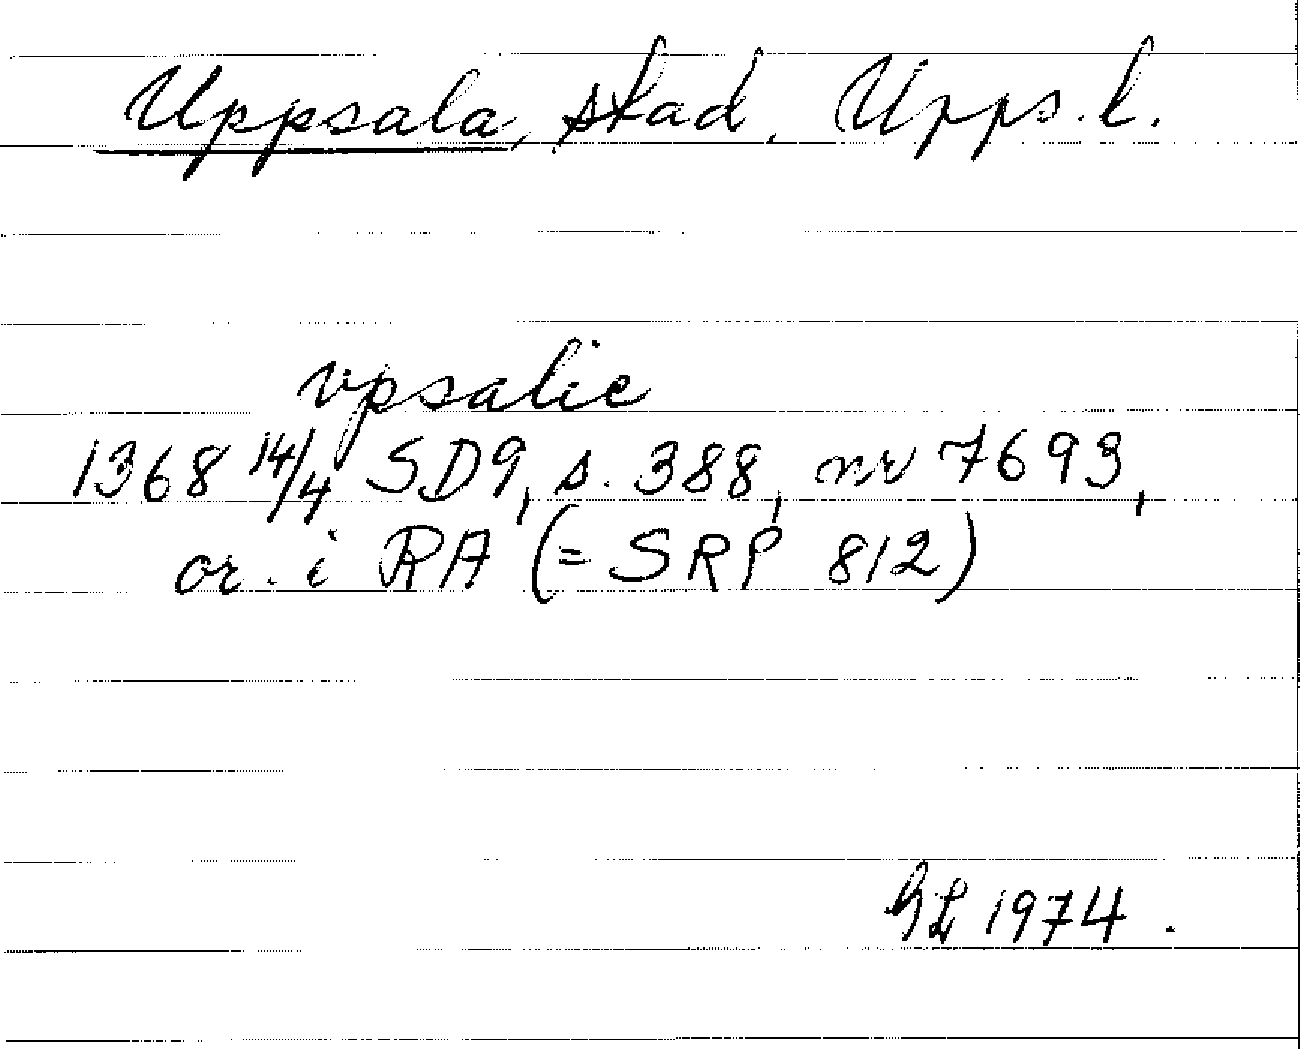 Uppsala, stad. Upps. l.
vpsalie
1368 14/4 SD9, s. 388, nr 7693,
or. i RA (= SRP 812)
GL 1974.